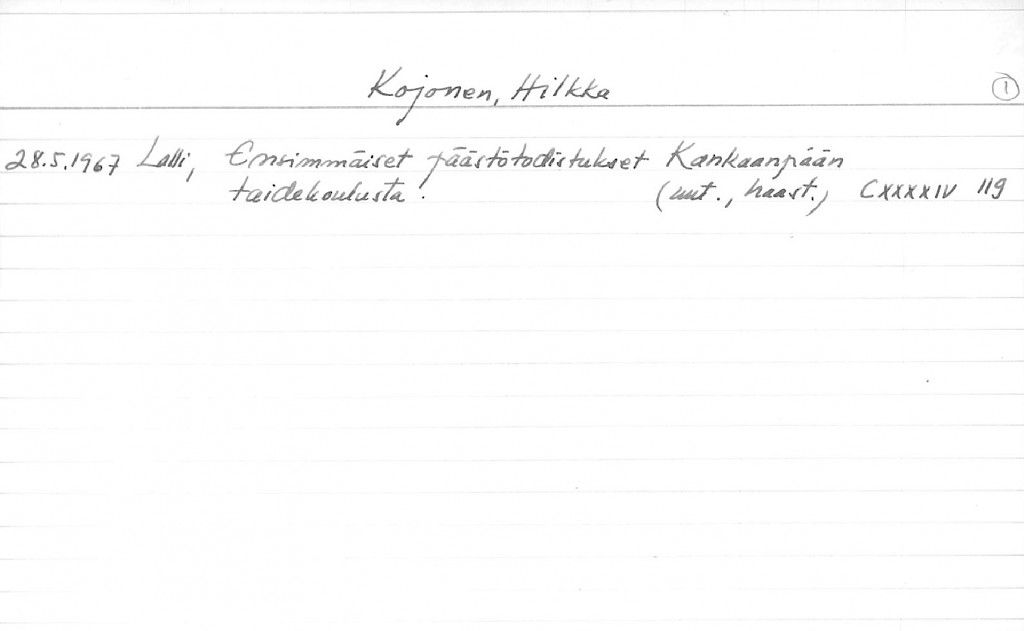 Kojonen, Hilkka 1
28.5.1967 Lalli, Ensimmäiset päästötodistukset Kankaanpään
taidekoulusta. (uut., haast.) CXXXXIV 119